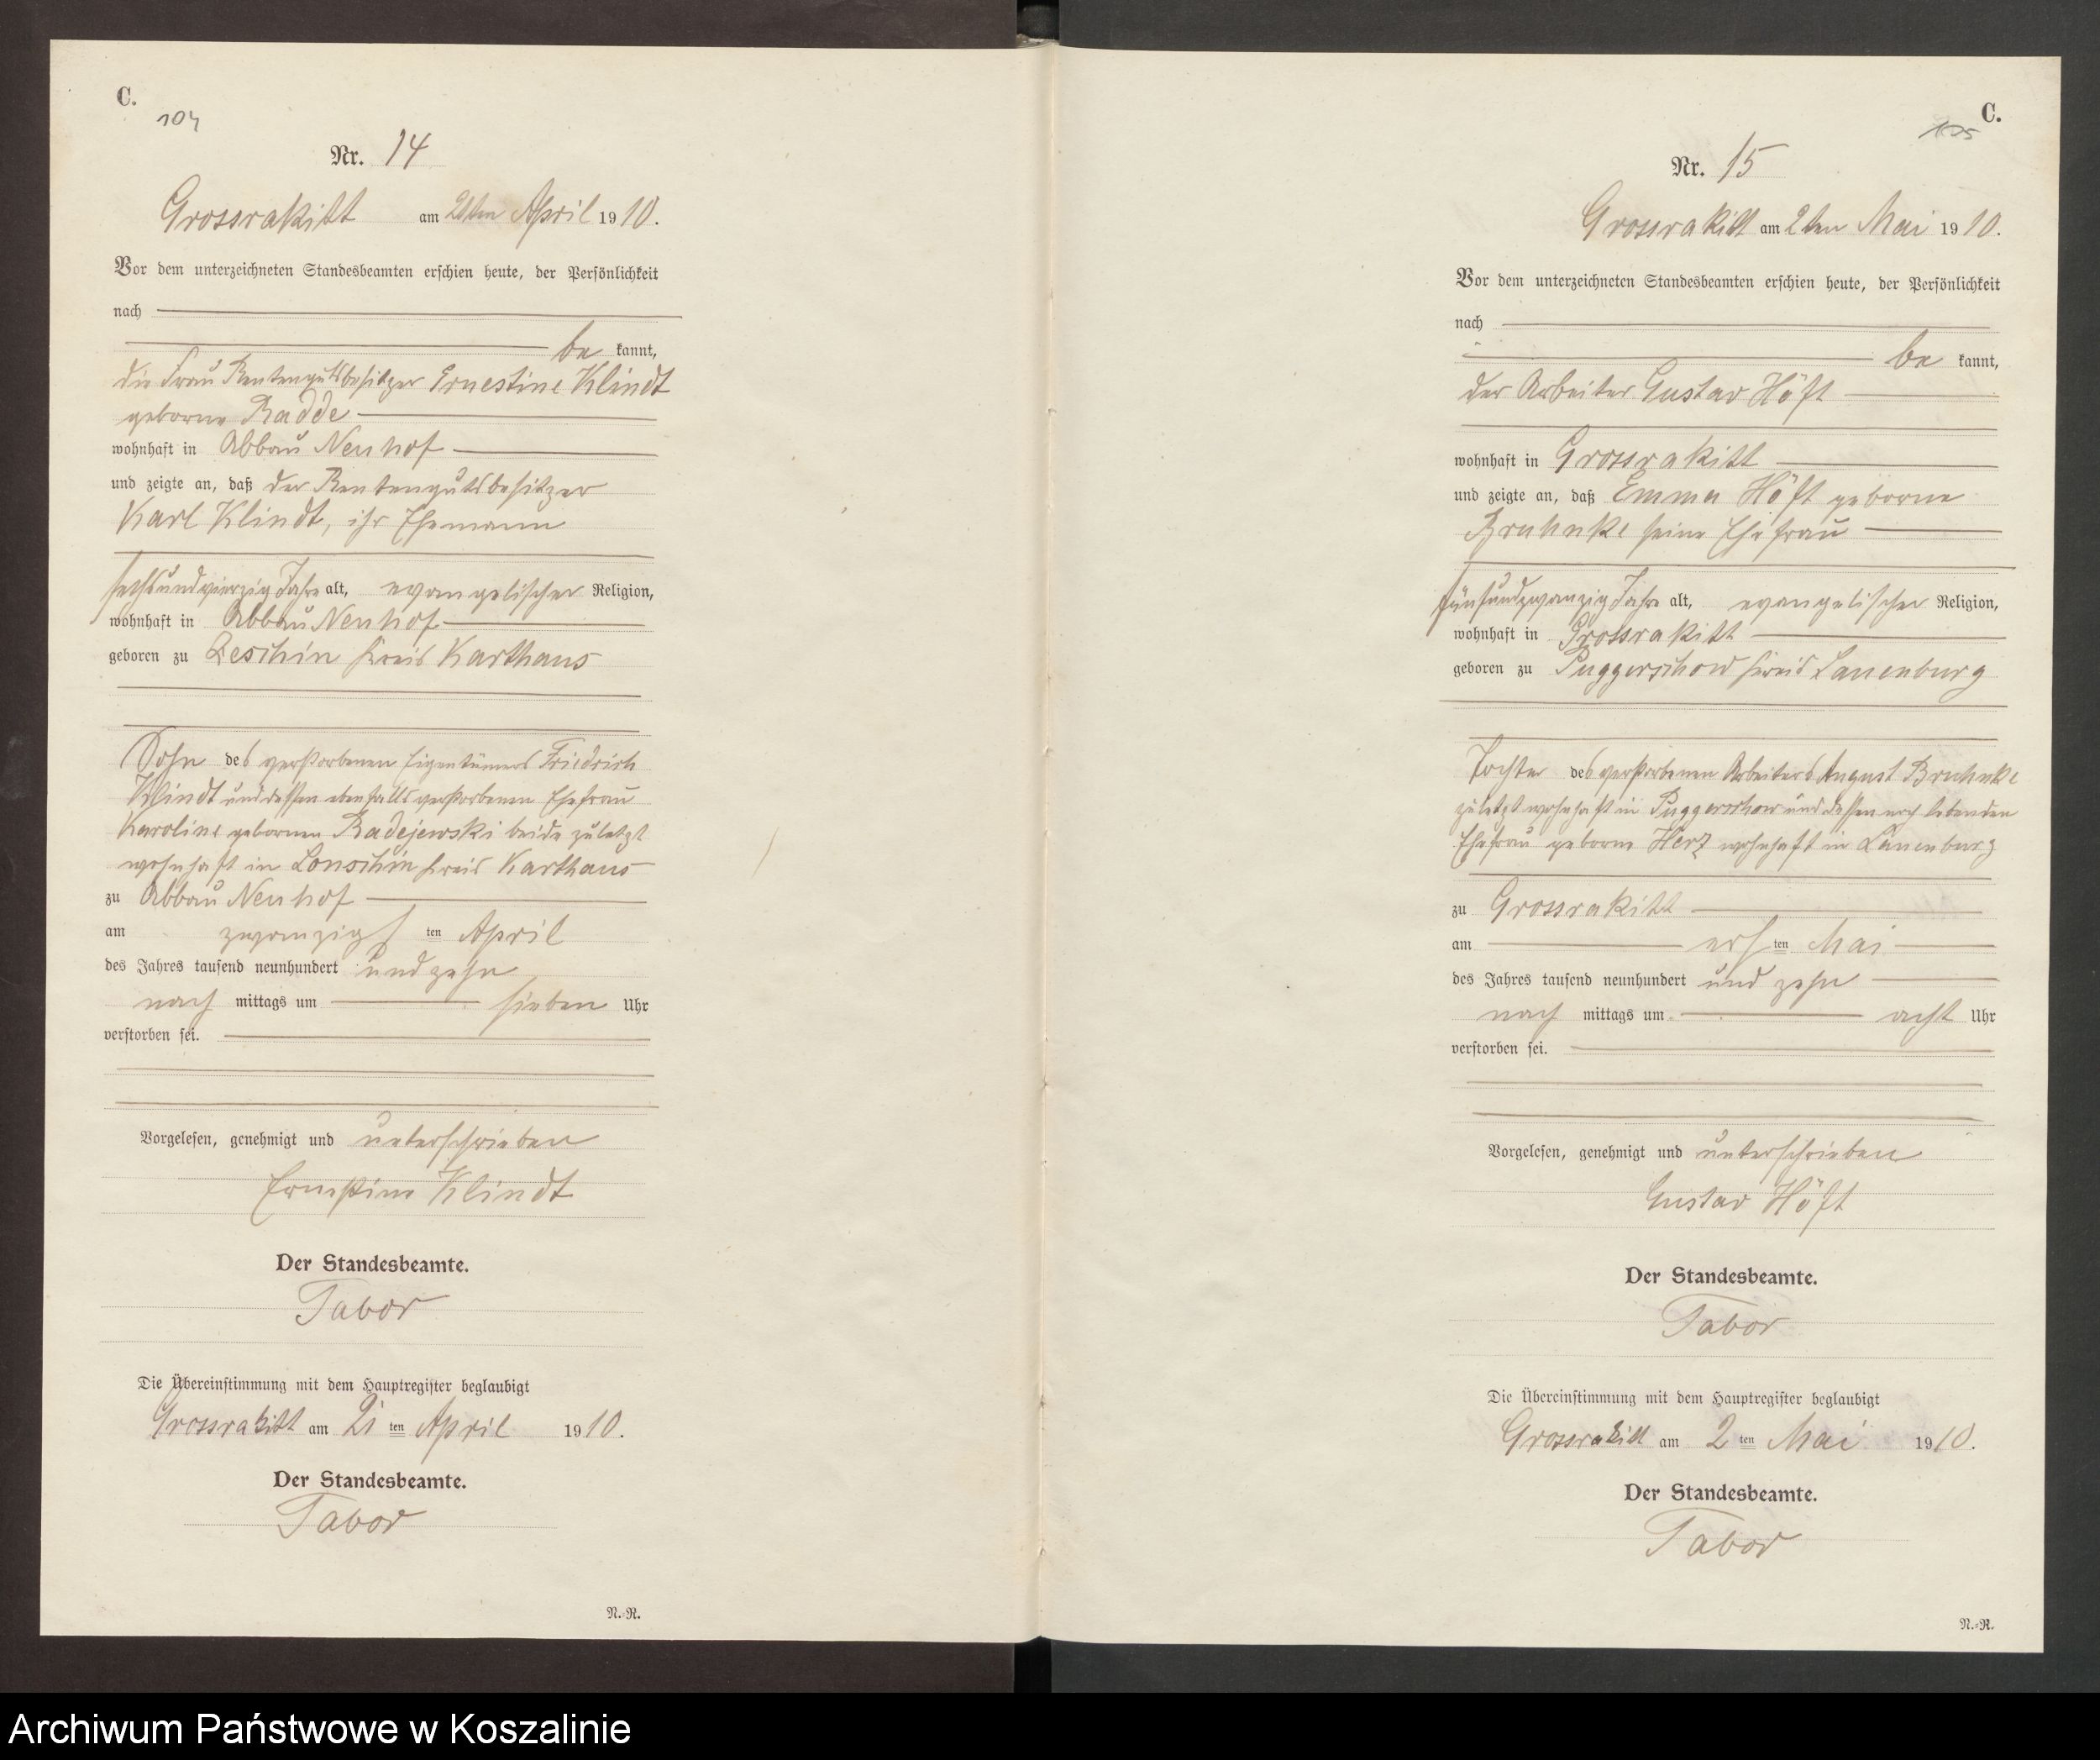 C.
104
Nr. 14
Grossrakitt am 21ten April 1910.
Vor dem unterzeichneten Standesbeamten erschien heute, der Persönlichkeit
nach
be kannt,
die Frau Rentengutsbesitzer Ernestine Klindt
geborne Radde
wohnhaft in Abbau Neuhof
und zeigte an, daß der Rentengutsbesitzer
Karl Klindt, ihr Ehemann
sechsundvierzig Jahre alt, evangelischer Religion,
wohnhaft in Abbau Neuhof
geboren zu Zeschin Kreis Karthaus
Sohn des verstorbenen Eigentümers Friedrich
Klindt und dessen ebenfalls verstorbenen Ehefrau
Karoline gebornen Radejewski beide zuletzt
wohnhaft in Lonschin Kreis Karthaus
zu Abbau Neuhof
am zwanzigsten April
des Jahres tausend neunhundert und zehn
nach mittags um sieben Uhr
verstorben sei.
Vorgelesen, genehmigt und unterschrieben
Ernestine Klindt
Der Standesbeamte.
Tabor
Die Übereinstimmung mit dem Hauptregister beglaubigt
Grossrakitt am 21 ten April 1910.
Der Standesbeamte.
Tabor
N.-R.
C.
105
Nr. 15
Grossrakitt am 2ten Mai 1910.
Vor dem unterzeichneten Standesbeamten erschien heute, der Persönlichkeit
nach
be kannt,
der Arbeiter Gustav Höft
wohnhaft in Grossrakitt
und zeigte an, daß Emma Höft geborne
Bruhnke seine Ehefrau
fünfundzwanzig Jahre alt, evangelischer Religion,
wohnhaft in Grossrakitt
geboren zu Puggerschow Kreis Lauenburg
Tochter des verstorbenen Arbeiters August Bruhnke
zuletzt wohnhaft in Puggerschow und dessen noch lebenden
Ehefrau geborne Herz wohnhaft in Lauenburg
zu Grossrakitt
am ersten Mai
des Jahres tausend neunhundert und zehn
nach mittags um acht Uhr
verstorben sei.
Vorgelesen, genehmigt und unterschrieben
Gustav Höft
Der Standesbeamte.
Tabor
Die Übereinstimmung mit dem Hauptregister beglaubigt
Grossrakitt am 2 ten Mai 1910.
Der Standesbeamte.
Tabor
N.-R.
Archiwum Państwowe w Koszalinie